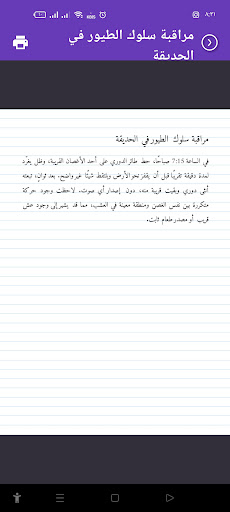 ٨:٣١
مراقبة سلوك الطيور في
الحديقة
مراقبة سلوك الطيور في الحديقة
في الساعة 7:15 صباحًا، حط طائر الدوري على أحد الأغصان القريبة، وظل يغرّد
لمدة دقيقة تقريبًا قبل أن يقفز نحو الأرض ويلتقط شيئًا غير واضح. بعد ثوانٍ، تبعته
أنثى دوري وبقيت قريبة منه، دون إصدار أي صوت. لاحظت وجود حركة
متكررة بين نفس الغصن ومنطقة معينة في العشب، مما قد يشير إلى وجود عش
قريب أو مصدر طعام ثابت.